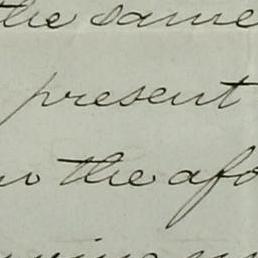 the same
present
the afo